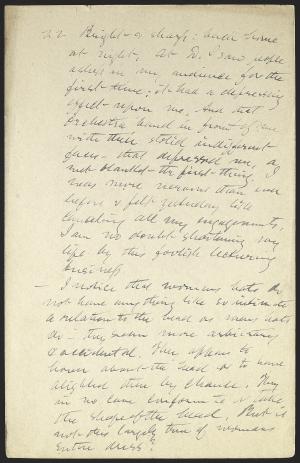 at night. At D. I saw people
asleep in my audience for the
first time; it had a depressing
effect upon me. And that
orchestra band in front of me
with their stolid indifferent
faces - that depressed me, a
wet blanket the first thing. I
was more nervous than ever
before & felt yesterday like
canceling all my engagements.
I am no doubt shortening my
life by this foolish lecturing
business
- I notice that womans hats do
not have anything like so intimate
a relation to the head as mens hats
do - they seem more arbitrary
& accidental. They appear to
hover about the head or to have
alighted there by chance. They
in no case conform to & take
the shape of the head. But is
not this largely true of womans
entire dress?